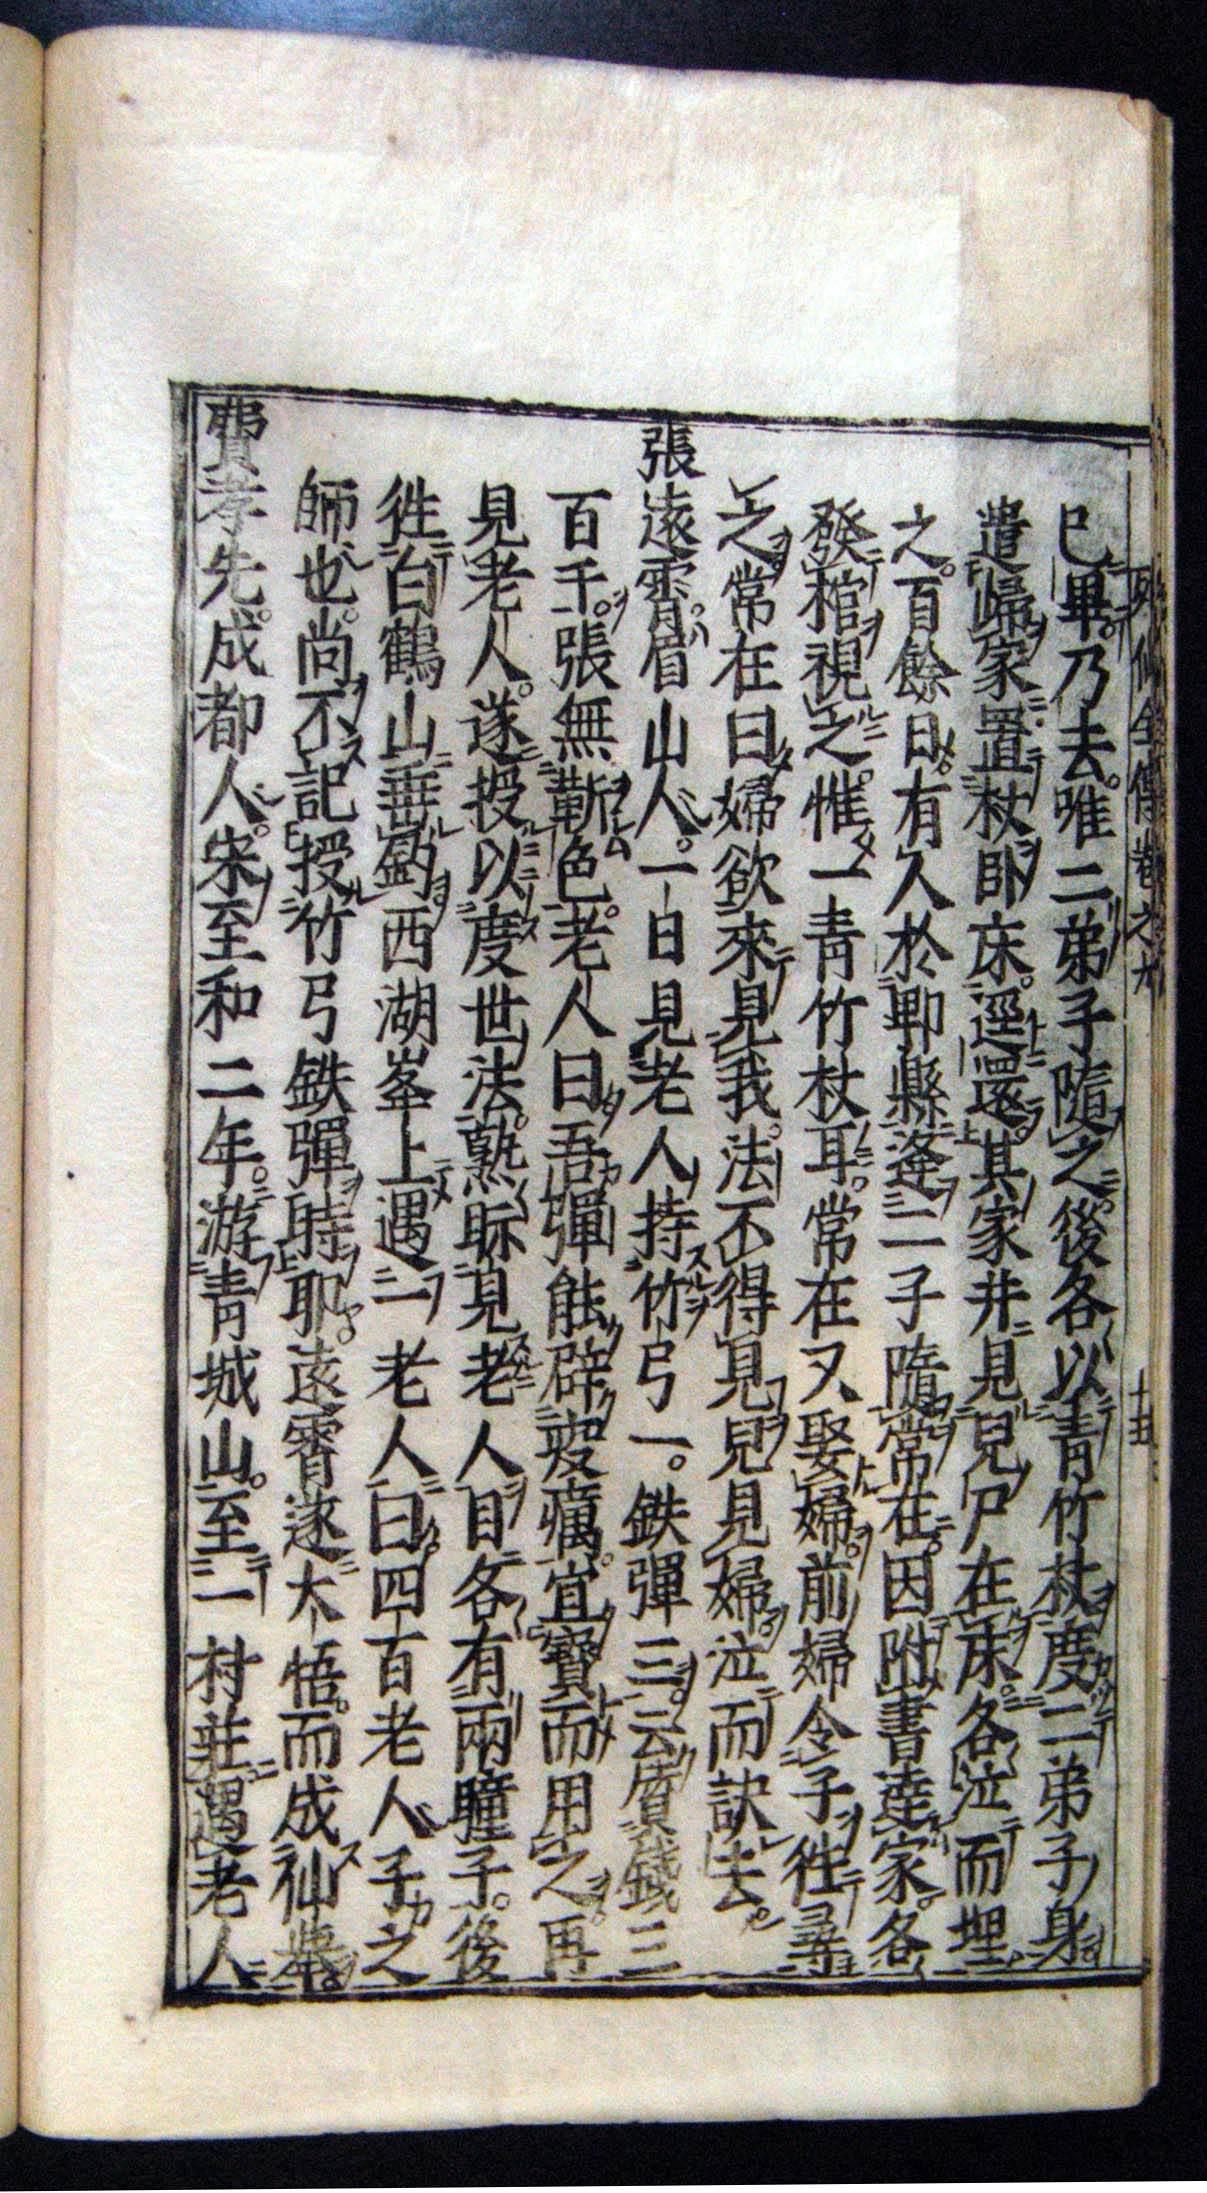 列仙全傳卷之九
十五
已畢乃去唯二弟子隨之後各以青竹杖度二弟子身
遣歸家置杖卧床逕還其家并見兒尸在床各泣而埋
之百餘日有人於郫縣逢二子隨常在因附書達家各
發棺視之惟一青竹杖耳常在又娶婦前婦令子徃尋
之常在曰婦欲來見我法不得見兒見婦泣而訣去
張遠霄眉山人一日見老人持竹弓一鉄彈三云質錢三
百千張無靳色老人曰吾彈能辟疫癘宜寶而用之再
見老人遂授以度世法熟眎見老人目各有兩瞳子後
徃白鶴山垂釣西湖峯上遇一老人曰四百老人子之
師也尚不記授竹弓鉄彈時耶遠霄遂大悟而成仙舉
費孝先成都人宋至和二年游青城山至一村莊遇老人